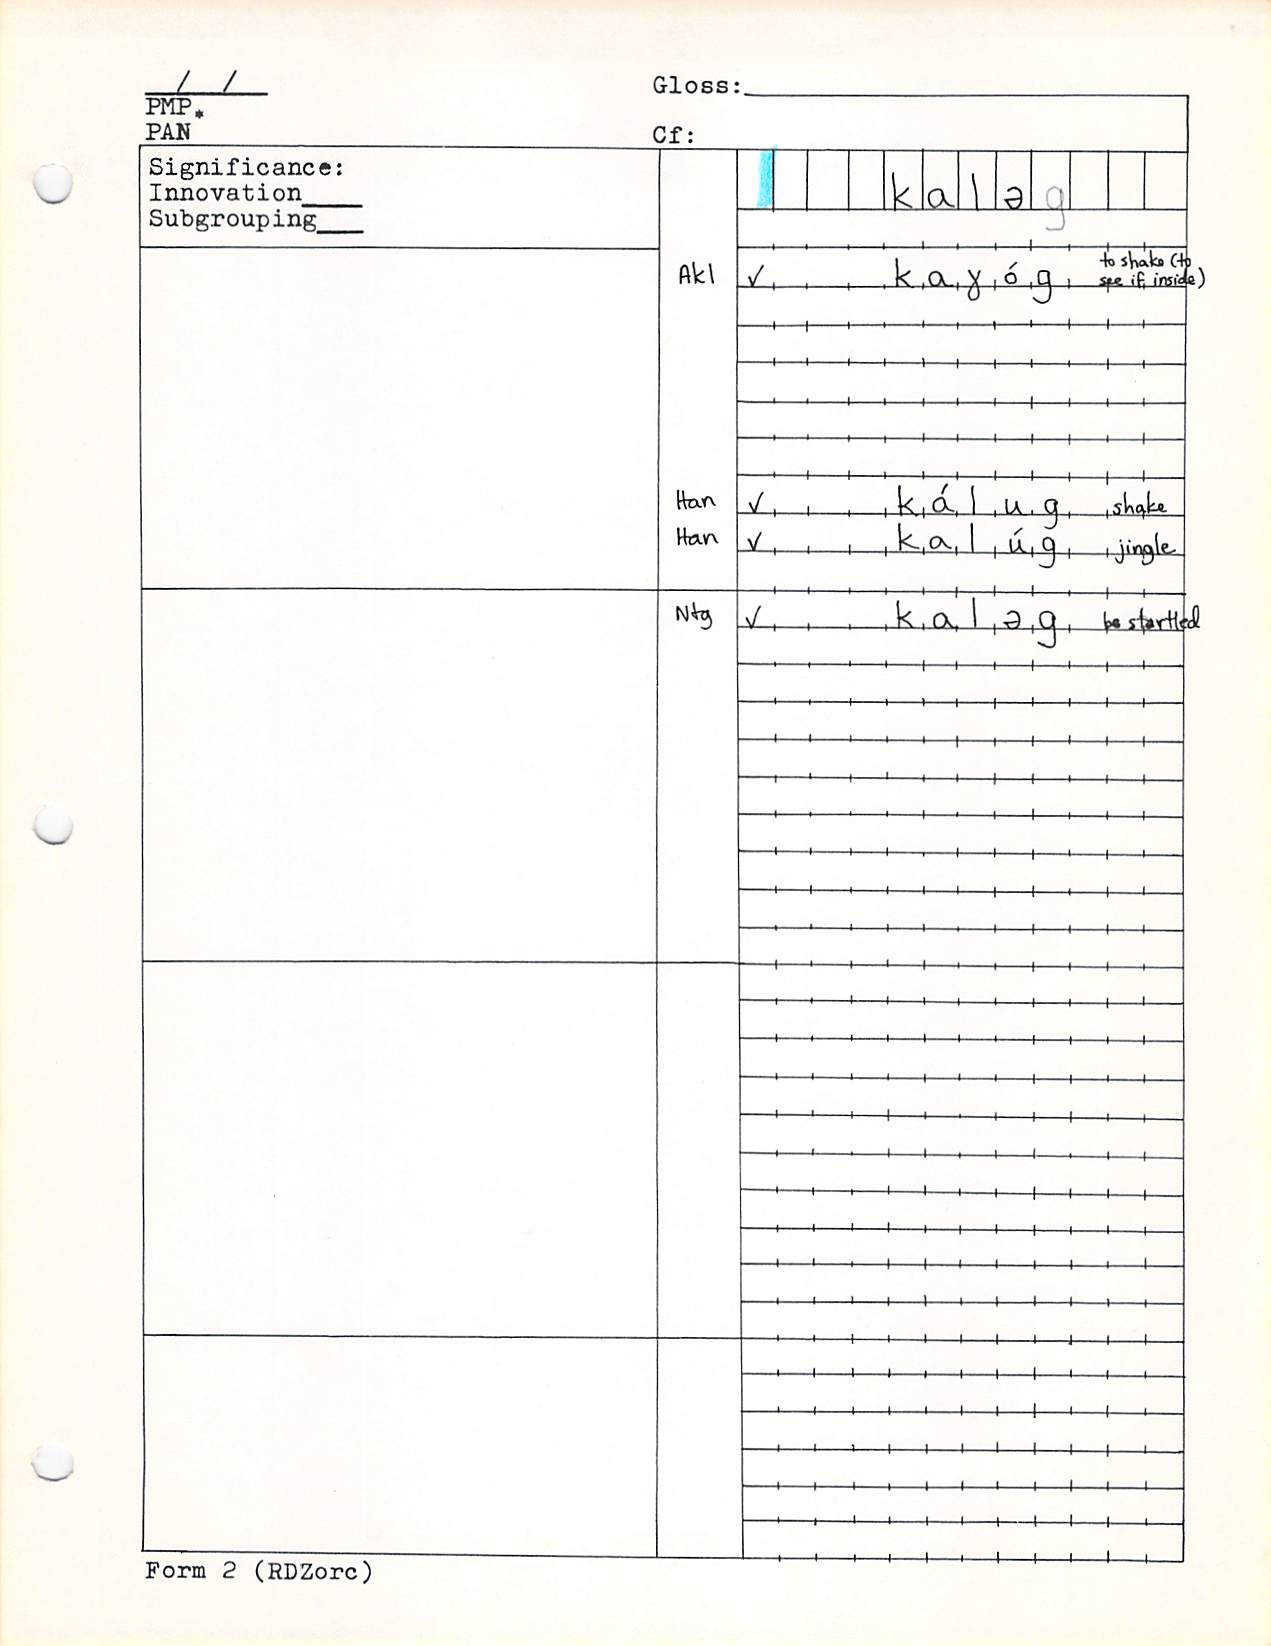 / /
Gloss:
PMP *
PAN
Cf:
Significance:
Innovation
Subgrouping
kaləg
Akl ✓ kaɣóg to shake (to see if inside)
Han ✓ kálug shake
Han ✓ kalúg jingle
Ntg ✓ kaləg be startled
Form 2 (RDZorc)